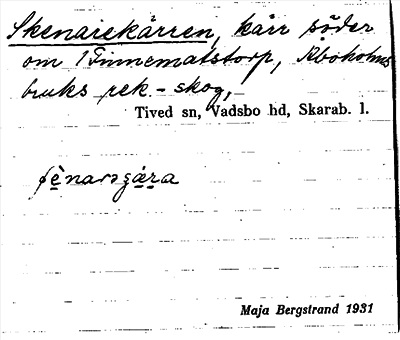 Skenarekärren, kärr söder
om 1 Finnematstorp, Aboholms
bruks rek. - skog,
Tived sn, Vadsbo hd, Skarab. l.
Maja Bergstrand 1931